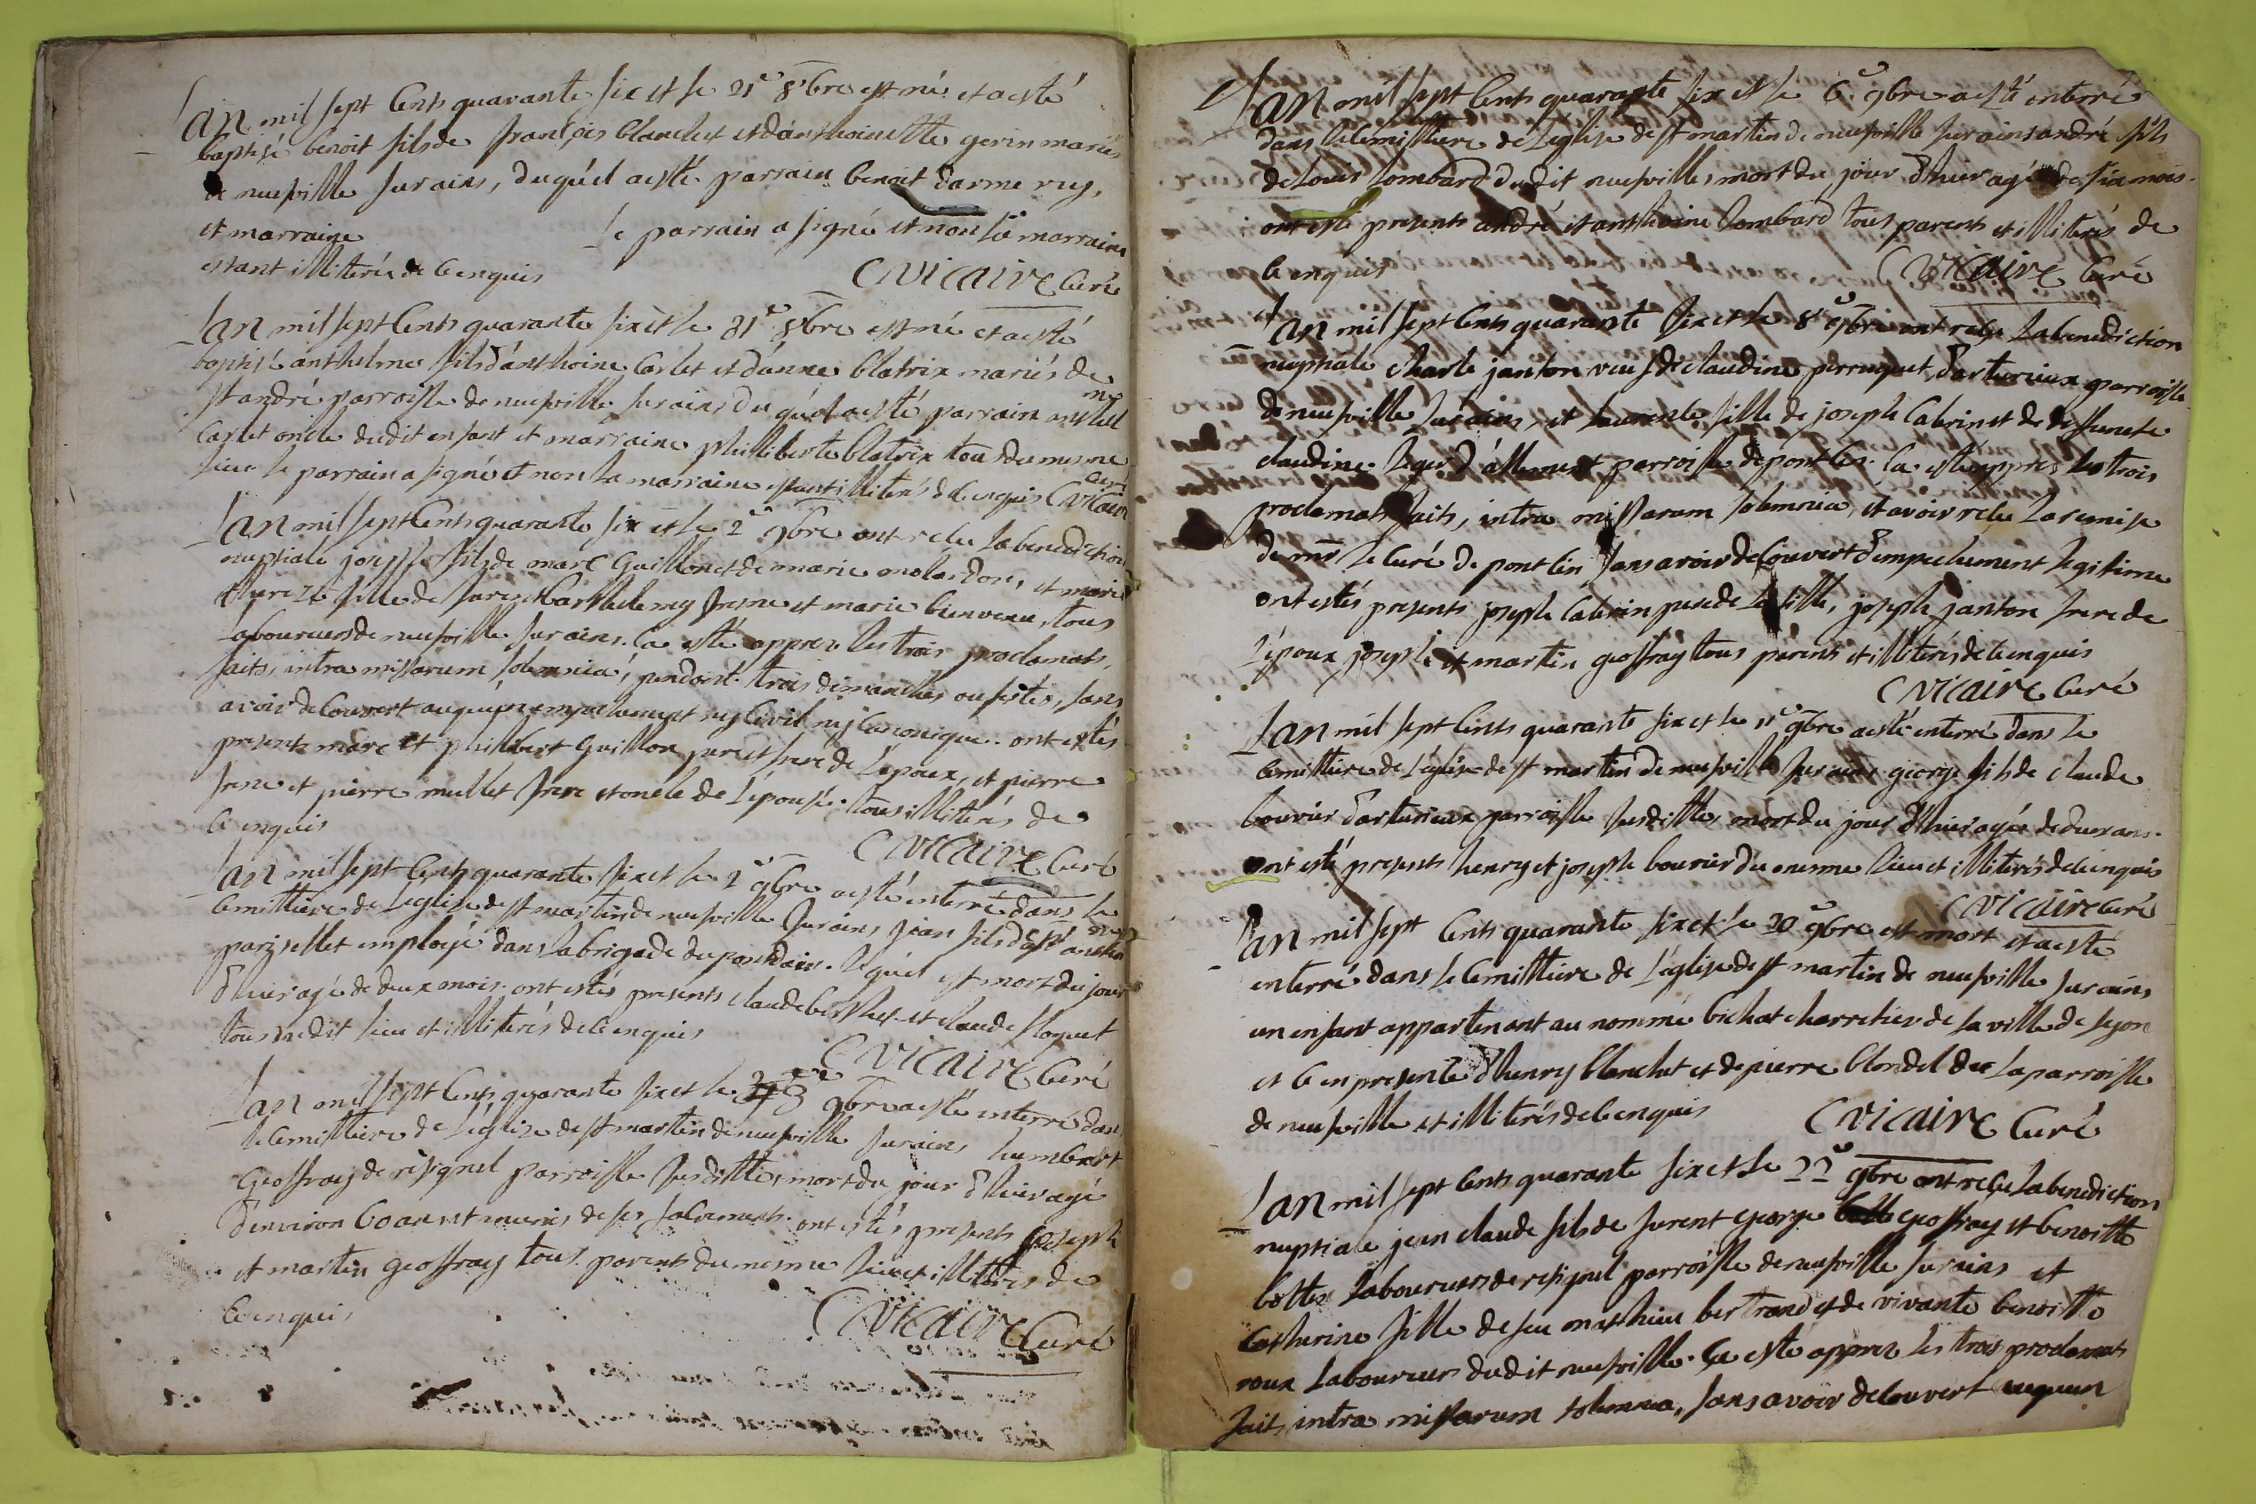 Lan mil sept cents quarante six et le 21e 8bre est né et a esté
baptisé benoit fils de françois blanchet et d'anthoinette gerin mariés
de neufville sur ains, duquel a esté parrain benoit darme
et marraine le parrain a signé et non la marraine
estant illiterée de ce enquis C vicaire Curé
Lan mil sept cents quarante six et le 31e 8bre est né et a esté
baptisé anthelme fils d'anthoine Carlet et d'anne blatrix mariés de
st andré parroisse de neufville sur ains duquel a esté parrain
Carlet oncle dudit enfant et marraine philliberte blatrix tou du mesme
lieu le parrain a signé et non la marraine estant illiterés de ce enquis C vicaire Curé
Lan mil sept cents quarante six et le 2e 9bre ont reçu la benediction
nuptiale fils de marc Guillon et de marie et marie
fille de Barthelemy frene et marie bienvenu, tous
laboureurs de neufville sur ains. Ce a esté apprez les trois proclamats
faits, intra missarum solemnia, pendant trois dimanches ou festes, sans
avoir decouvert auqun empechement ny Civil ny Canonique. ont estés
presents marc et philibert Guillon pere et frere de L'epoux, et pierre
frene et pierre mullet frere et oncle de L'epouse. tous illiterés de
ce enquis
C vicaire Curé
Lan mil sept cents quarante six et le 2e 9bre a esté interré dans le
cemittiere de L'eglise de st martin de neufville sur ains, jean fils
parizellet employé dans la brigade du pontdain. lequel est mort du jour
d'huier agé de deux mois. ont estés presents claude et claude
tous dudit lieu et illiterés de ce enquis
C vicaire Curé
Lan mil sept cents quarante six et le 3e 9bre a esté interré dans
le cemittiere de L'eglise de st martin de neufville sur ains humbert
Geoffray de resignel parroisse susditte, mort du jour d'huier agé
d'environ 60 ans et munis de ses sacrements. ont estés presents joseph
et martin geoffray tous parents du mesme lieu et illiterés de
ce enquis
C vicaire Curé
Lan mil sept cents quarante six et le 6e 9bre a esté interré
dans le cemittiere de L'eglise de st martin de neufville sur ains andré fils
de Louis Lombard dudit neufville, mort du jour d'huier agé de six mois.
ont esté presents andré et anthoine Lombard tous parents et illiterés de
ce enquis C vicaire Curé
Lan mil sept cents quarante six et le 8e 9bre ont reçu la benediction
nuptiale charle janton veuf de claudine perruquet d'arturieux parroisse
de neufville sur ains, et laurente fille de joseph Cabrin et de deffuncte
claudine Leger parroisse de pont Ces. Ce a esté apprez les trois
proclamats faits, intra missarum solemnia, et avoir reçu la remise
de mr le Curé de pont Cin sans avoir decouvert d'empechement legitime
ont estés presents joseph Cabrin pere de la fille, joseph janton frere de
L'epoux joseph et martin geoffray tous parents et illiterés de ce enquis
C vicaire Curé
Lan mil sept cents quarante six et le 11e 9bre a esté interré dans le
cemittiere de L'eglise de st martin de neufville sur ains george fils de claude
bouvier d'arturieux parroisse susditte, mort du jour d'huier agé de deux ans.
ont esté presents henry et joseph bouvier du mesme lieu et illiterés de ce enquis
C vicaire Curé
Lan mil sept cents quarante six et le 20e 9bre est mort et a esté
enterré dans le cemittiere de L'eglise de st martin de neufville sur ains
un enfant appartenant au nommé bichat charretier de la ville de lyon
et ce en presente d'henry blanchet et de pierre blondel de la parroisse
de neufville et illiterés de ce enquis C vicaire Curé
Lan mil sept cents quarante six et le 22e 9bre ont reçu la benediction
nuptiale jean claude fils de furent george geoffray et benoitte
bottex Laboureurs de resignel parroisse de neufville sur ains et
Catherine fille de feu mathieu bertrand et de vivante benoitte
roux Laboureurs dudit neufville. Ce a esté apprez les trois proclamats
fait, intra missarum solemnia, sans avoir decouvert auqun